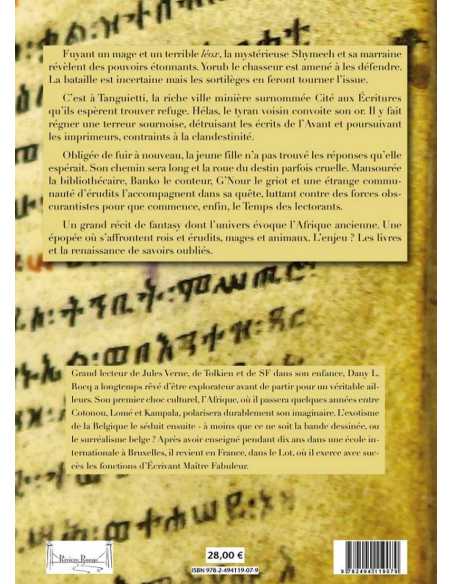 Fuyant un mage et un terrible léox, la mystérieuse Shymech et sa marraine
révèlent des pouvoirs étonnants. Yorub le chasseur est amené à les défendre.
La bataille est incertaine mais les sortilèges en feront tourner l'issue.
C'est à Tanguietti, la riche ville minière surnommée Cité aux Écritures
qu'ils espèrent trouver refuge. Hélas, le tyran voisin convoite son or. Il y fait
régner une terreur sournoise, détruisant les écrits de l'Avant et poursuivant
les imprimeurs, contraints à la clandestinité.
Obligée de fuir à nouveau, la jeune fille n'a pas trouvé les réponses qu'elle
espérait. Son chemin sera long et la roue du destin parfois cruelle. Mansourée
la bibliothécaire, Banko le conteur, G'Nour le griot et une étrange commu-
nauté d'érudits l'accompagnent dans sa quête, luttant contre des forces obs-
curantistes pour que commence, enfin, le Temps des lectorants.
Un grand récit de fantasy dont l'univers évoque l'Afrique ancienne. Une
épopée où s'affrontent rois et érudits, mages et animaux. L'enjeu ? Les livres
et la renaissance de savoirs oubliés.
Grand lecteur de Jules Verne, de Tolkien et de SF dans son enfance, Dany L.
Rocq a longtemps rêvé d'être explorateur avant de partir pour un véritable ail-
leurs. Son premier choc culturel, l'Afrique, où il passera quelques années entre
Cotonou, Lomé et Kampala, polarisera durablement son imaginaire. L'exotisme
de la Belgique le séduit ensuite - à moins que ce ne soit la bande dessinée, ou
le surréalisme belge ? Après avoir enseigné pendant dix ans dans une école in-
ternationale à Bruxelles, il revient en France, dans le Lot, où il exerce avec suc-
cès les fonctions d'Écrivant Maître Fabuleur.
28,00 €
ISBN 978-2-494119-07-9
9782494119079